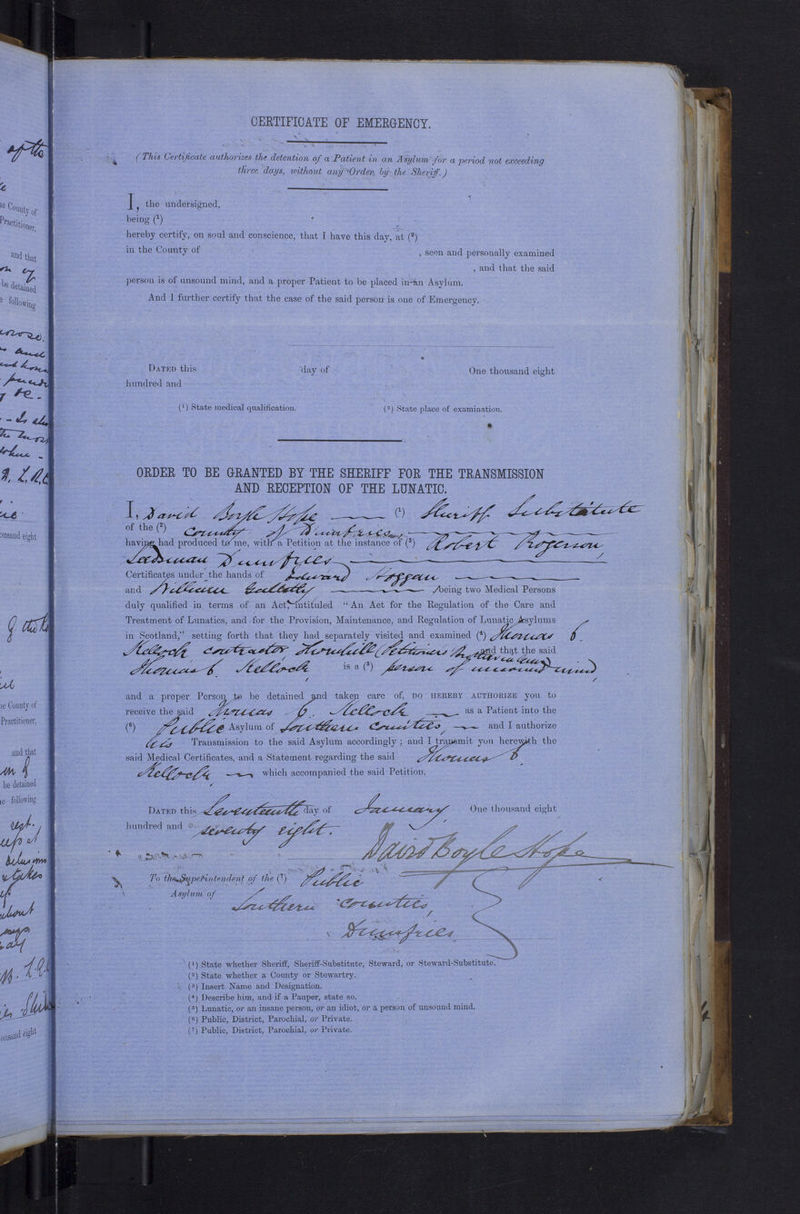 CERTIFICATE OF EMERGENCY.
(This Certificate authorizes the detention of a Patient in an Asylum for a period not exceeding
three days, without any Order by the Sheriff.)
I, the undersigned,
being (1)
hereby certify, on soul and conscience, that I have this day, at (2)
in the County of , seen and personally examined
, and that the said
person is of unsound mind, and a proper Patient to be placed in an Asylum.
And I further certify that the case of the said person is one of Emergency.
DATED this day of One thousand eight
hundred and
(1) State medical qualification. (2) State place of examination.
ORDER TO BE GRANTED BY THE SHERIFF FOR THE TRANSMISSION
AND RECEPTION OF THE LUNATIC.
I, David Boyle Hope (1) Sheriff Substitute
of the (2) County of Dumfries
having had produced to me, with a Petition at the instance of (3) Robert Rogerson
Dumfries
Certificates under the hands of Edward
and William being two Medical Persons
duly qualified in terms of an Act intituled "An Act for the Regulation of the Care and
Treatment of Lunatics, and for the Provision, Maintenance, and Regulation of Lunatic Asylums
in Scotland," setting forth that they had separately visited and examined (4) Thomas
Kellock contractor Thornhill Petitioners and that the said
Thomas Kellock is a (5) person of unsound mind
and a proper Person to be detained and taken care of, DO HEREBY AUTHORIZE you to
receive the said Thomas Kellock as a Patient into the
(6) Public Asylum of Southern Counties and I authorize
his Transmission to the said Asylum accordingly; and I transmit you herewith the
said Medical Certificates, and a Statement regarding the said Thomas
Kellock which accompanied the said Petition.
DATED this Seventeenth day of January One thousand eight
hundred and seventy eight.
David Boyle Hope
To the Superintendent of the (7) Public
Asylum of Southern Counties
Dumfries
(1) State whether Sheriff, Sheriff-Substitute, Steward, or Steward-Substitute.
(2) State whether a County or Stewartry.
(3) Insert Name and Designation.
(4) Describe him, and if a Pauper, state so.
(5) Lunatic, or an insane person, or an idiot, or a person of unsound mind.
(6) Public, District, Parochial, or Private.
(7) Public, District, Parochial, or Private.